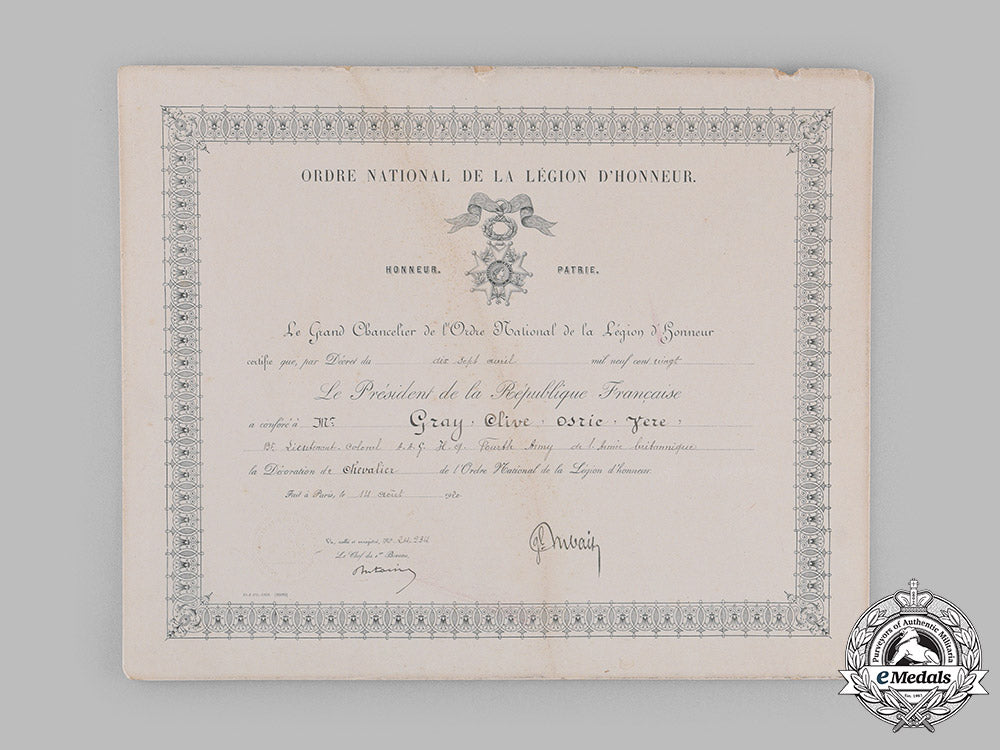 ORDRE NATIONAL DE LA LÉGION D'HONNEUR.
HONNEUR. PATRIE.
Le Grand Chancelier de l'Ordre National de la Légion d'Honneur
certifie que, par Décret du dix sept avril mil neuf cent vingt
Le Président de la République Française
a conféré à Mr Gray, Clive Osric Vere,
Bt Lieutenant Colonel H.Q. Fourth Army de l'Armée britannique
la Décoration de Chevalier de l'Ordre National de la Légion d'honneur.
Fait à Paris, le 14 août 1920
Vu, scellé et enregistré, No 24.234
Le Chef du 1er Bureau,
Purveyors of Authentic Militaria
eMedals